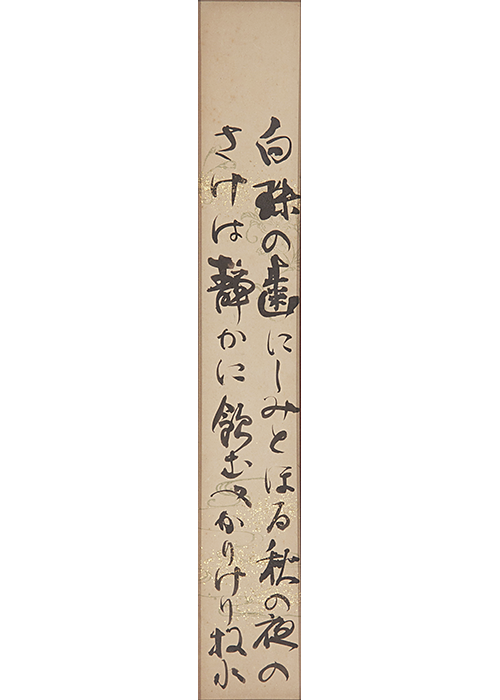 白珠の歯にしみとほる秋の夜の
さけは静かに飲むへかりけり 牧水